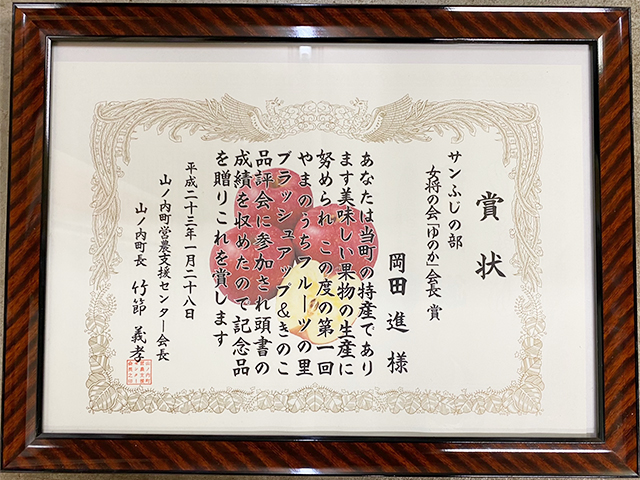 賞状
サンふじの部
女将の会「ゆのか」会長賞
岡田進様
あなたは当町の特産であり
ます美味しい果物の生産に
努められ この度の第一回
やまのうちフルーツの里
ブラッシュアップ&きのこ
品評会に参加され頭書の
成績を収めたので記念品
を贈りこれを賞します
平成二十三年一月二十八日
山ノ内町営農支援センター会長
山ノ内町長 竹節義孝